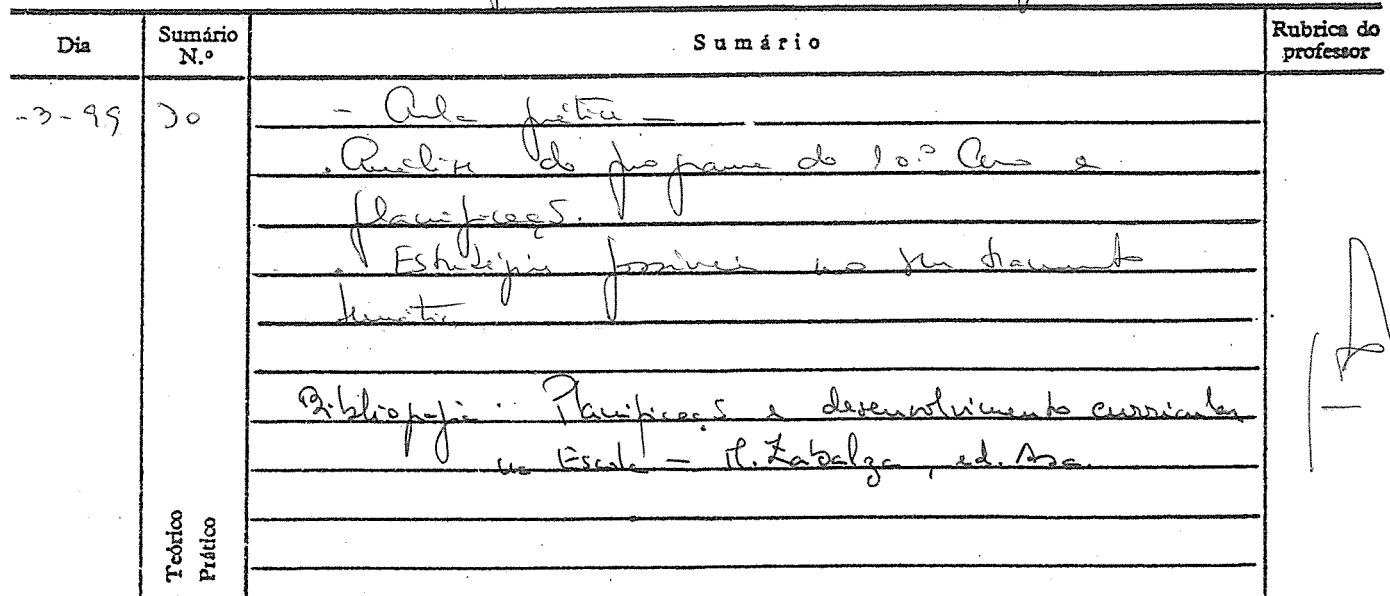 Dia
Sumário N.º
Sumário
Rubrica do professor
-3-99
30
- Aula prática -
. Análise do programa do 10.º Ano e
planificação.
. Estratégias possíveis no seu tratamento
temático
Bibliografia: Planificação e desenvolvimento curricular
na Escola - M. Zabalza, ed. Asa.
Teórico
Prático